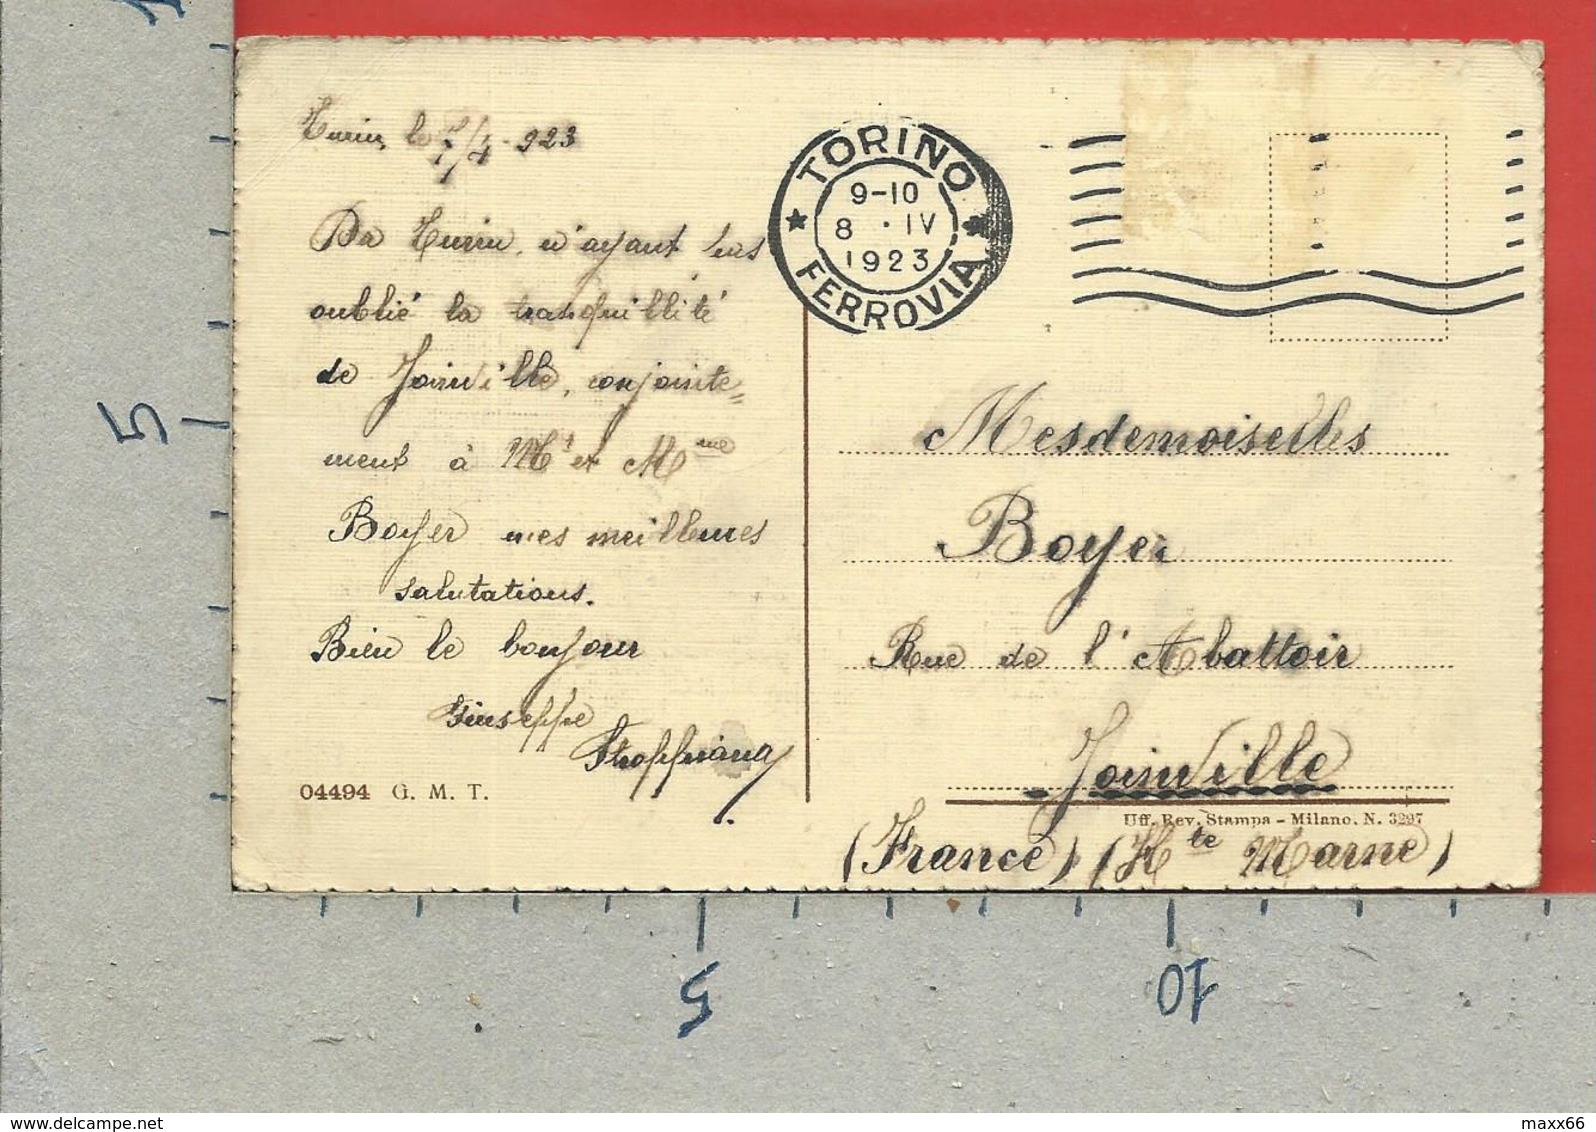 Turin, le 7/4-923
Da Turin, n'ayant pas
oublié la tranquillité
de Joinville, conjointe=
ment à Mr et Mme
Boyer mes meilleures
salutations.
Bien le bonjour
Giuseppe
04494 G. M. T.
TORINO
9-10
8 · IV
1923
FERROVIA
Mesdemoiselles
Boyer
Rue de l'Abattoir
Joinville
Uff. Rev. Stampa - Milano. N. 3297
(France) (Hte Marne)
5
5
10
www.delcampe.net
maxx66